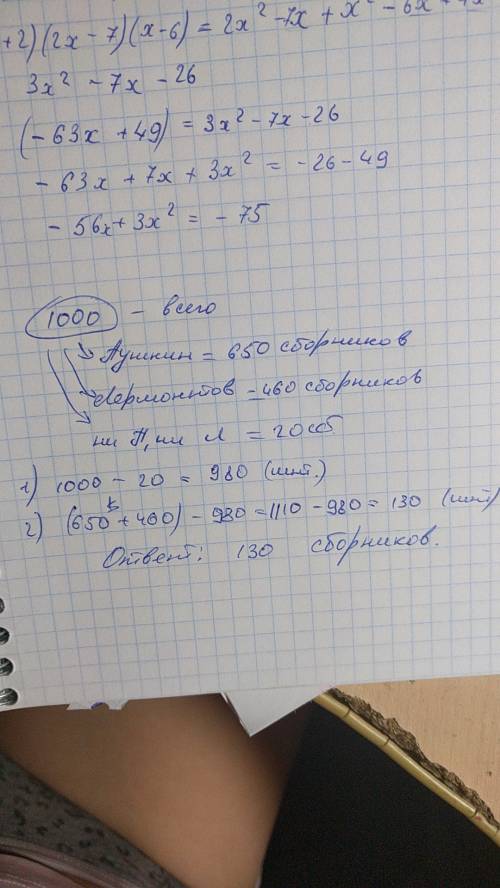 +2) (2x - 7) (x - 6) = 2x² - 7x + x² - 6x
3x² - 7x - 26
(- 63x + 49) = 3x² - 7x - 26
- 63x + 7x + 3x² = - 26 - 49
- 56x + 3x² = - 75
1000 - всего
Пушкин = 650 сборников
Лермонтов - 460 сборников
ни П, ни Л = 20 сб
1) 1000 - 20 = 980 (шт.)
2) (650 + 460) - 980 = 1110 - 980 = 130 (шт)
Ответ: 130 сборников.